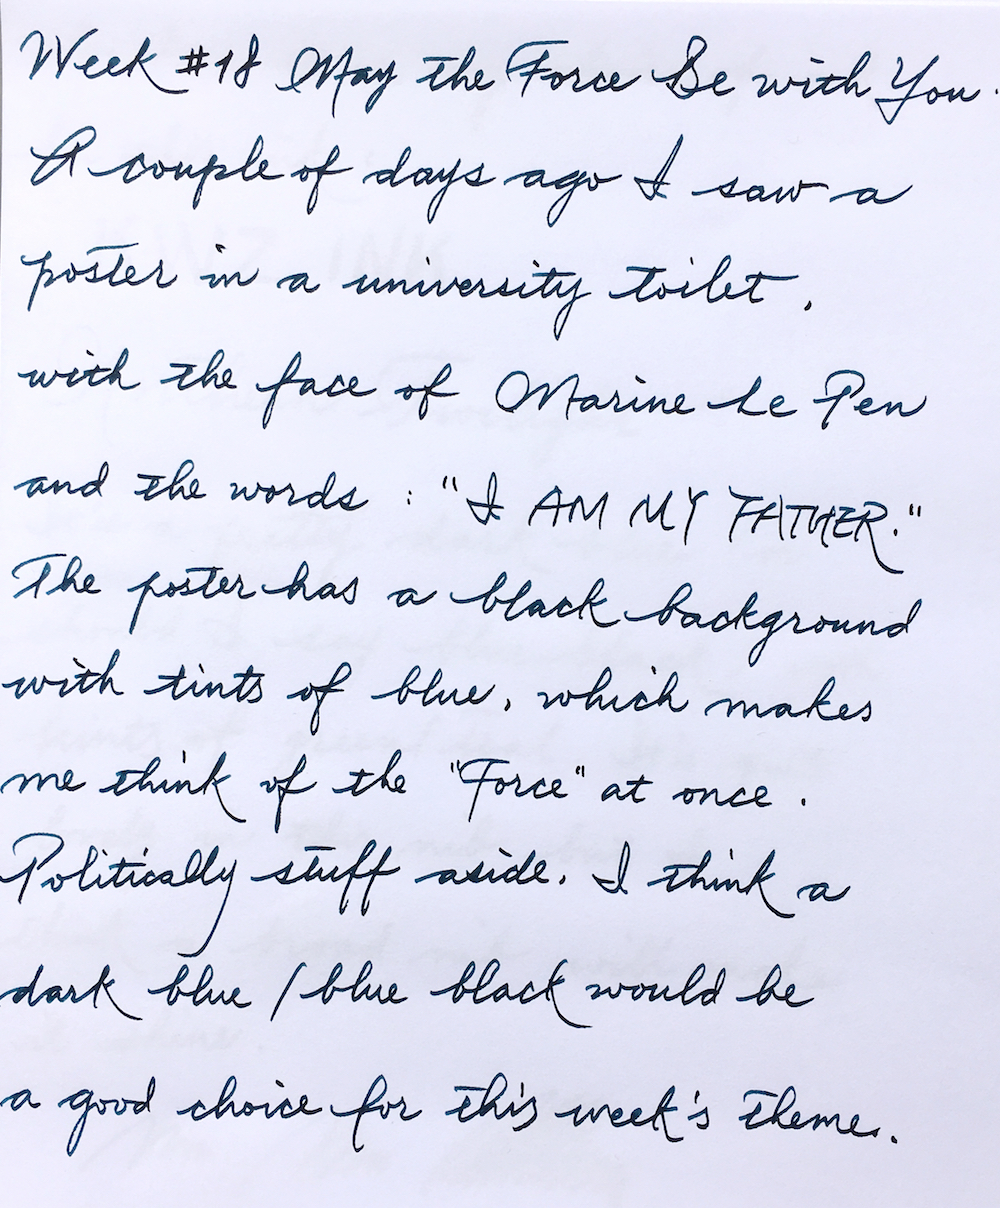 Week #18 May the Force Be with You.
A couple of days ago I saw a
poster in a university toilet,
with the face of Marine Le Pen
and the words : "I AM MY FATHER."
The poster has a black background
with tints of blue, which makes
me think of the "Force" at once.
Politically stuff aside, I think a
dark blue / blue black would be
a good choice for this week's theme.